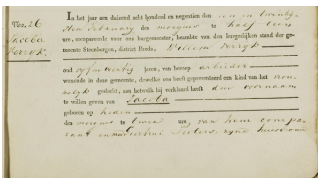 No. 26
Jacoba
In het jaar een duizend acht honderd en negentien den een en twintig-
sten February des morgens te half tien
ure, compareerde voor ons burgemeester, beambte van den burgerlijken stand der ge-
meente Steenbergen, district Breda, Willem
oud vijf en veertig jaren, van beroep arbeider
wonende in deze gemeente, dewelke ons heeft gepresenteerd een kind van het vrou-
welyk geslacht, aan hetwelk hij verklaard heeft den voornaam
te willen geven van Jacoba
geboren op heden
des morgens te twee ure, van hem compa-
rant en zyne huisvrouw